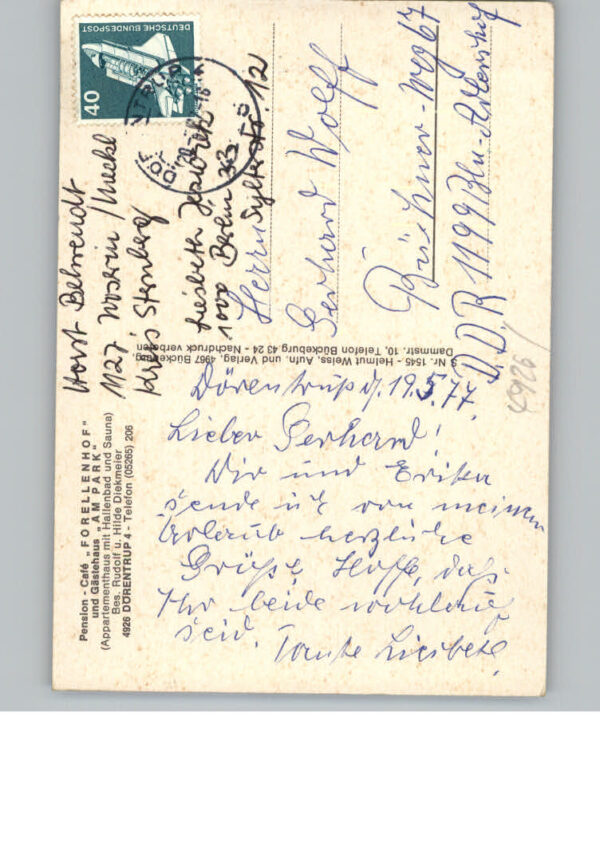 DEUTSCHE BUNDESPOST
40
Horst Behrendt
Kreis Sternberg
Liesbeth
1000 Berlin 33
Sylterstr. 12
Herrn
Gerhard Wolff
Büchner-Weg 67
1199 Bln-Adlershof
DDR
4926
Pension - Café „FORELLENHOF"
und Gästehaus „AM PARK"
(Appartementhaus mit Hallenbad und Sauna)
Bes. Rudolf u. Hilde Diekmeier
4926 DÖRENTRUP 4 - Telefon (05265) 206
S Nr. 1545 - Helmut Weiss, Aufn. und Verlag, 4967 Bückeburg,
Dammstr. 10, Telefon Bückeburg 43 24 - Nachdruck verboten
Dörentrup d. 19.5.77.
Lieber Gerhard!
Dir und Erika
sende ich von meinem
Urlaub herzliche
Grüße. Hoffe, daß
Ihr beide wohlauf
seid. Tante Liesbeth.